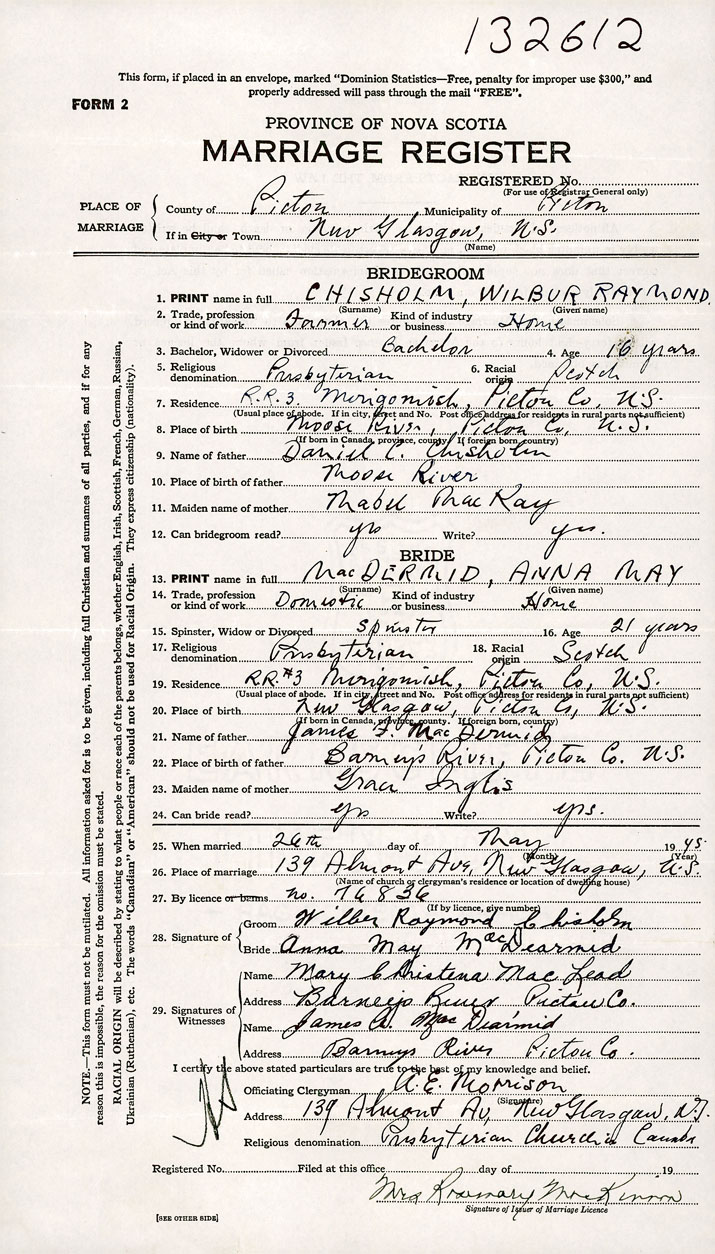 132612
This form, if placed in an envelope, marked "Dominion Statistics—Free, penalty for improper use $300," and
properly addressed will pass through the mail "FREE".
FORM 2
PROVINCE OF NOVA SCOTIA
MARRIAGE REGISTER
REGISTERED No.
(For use of Registrar General only)
PLACE OF MARRIAGE
County of Picton Municipality of Picton
If in City or Town New Glasgow, N.S.
(Name)
BRIDEGROOM
1. PRINT name in full CHISHOLM, WILBUR RAYMOND
(Surname) (Given name)
2. Trade, profession or kind of work Farmer Kind of industry or business Home
3. Bachelor, Widower or Divorced Bachelor 4. Age 16 years
5. Religious denomination Presbyterian 6. Racial origin Scotch
7. Residence R.R.3. Merigomish, Picton Co, N.S.
(Usual place of abode. If in city, street and No. Post office address for residents in rural parts not sufficient)
8. Place of birth Moose River, Picton Co, N.S.
(If born in Canada, province, county. If foreign born, country)
9. Name of father Daniel C. Chisholm
10. Place of birth of father Moose River
11. Maiden name of mother Mabel MacKay
12. Can bridegroom read? yes Write? yes.
BRIDE
13. PRINT name in full MacDERMID, ANNA MAY
(Surname) (Given name)
14. Trade, profession or kind of work Domestic Kind of industry or business Home
15. Spinster, Widow or Divorced Spinster 16. Age 21 years
17. Religious denomination Presbyterian 18. Racial origin Scotch
19. Residence R.R.#3 Merigomish, Picton Co, N.S.
(Usual place of abode. If in city, street and No. Post office address for residents in rural parts not sufficient)
20. Place of birth New Glasgow, Picton Co, N.S.
(If born in Canada, province, county. If foreign born, country)
21. Name of father James F. MacDermid
22. Place of birth of father Barneys River, Picton Co. N.S.
23. Maiden name of mother Grace Inglis
24. Can bride read? yes Write? yes.
25. When married 26th day of May 1945.
(Month) (Year)
26. Place of marriage 139 Almont Ave, New Glasgow, N.S.
(Name of church or clergyman's residence or location of dwelling house)
27. By licence or banns no. 76836
(If by licence, give number)
28. Signature of
Groom Wilber Raymond Chisholm
Bride Anna May MacDearmid
29. Signatures of Witnesses
Name Mary Christena MacLead
Address Barneys River Pictou Co.
Name James A. MacDearmid
Address Barneys River Picton Co.
I certify the above stated particulars are true to the best of my knowledge and belief.
Officiating Clergyman A. E. Morrison
(Signature)
Address 139 Almont Av, New Glasgow, N.S.
Religious denomination Presbyterian Church in Canada
Registered No. Filed at this office day of 19
Mrs Rosemary MacKinnon
Signature of Issuer of Marriage Licence
[SEE OTHER SIDE]
NOTE.—This form must not be mutilated. All information asked for is to be given, including full Christian and surnames of all parties, and if for any
reason this is impossible, the reason for the omission must be stated.
RACIAL ORIGIN will be described by stating to what people or race each of the parents belongs, whether English, Irish, Scottish, French, German, Russian,
Ukrainian (Ruthenian), etc. The words "Canadian" or "American" should not be used for Racial Origin. They express citizenship (nationality).